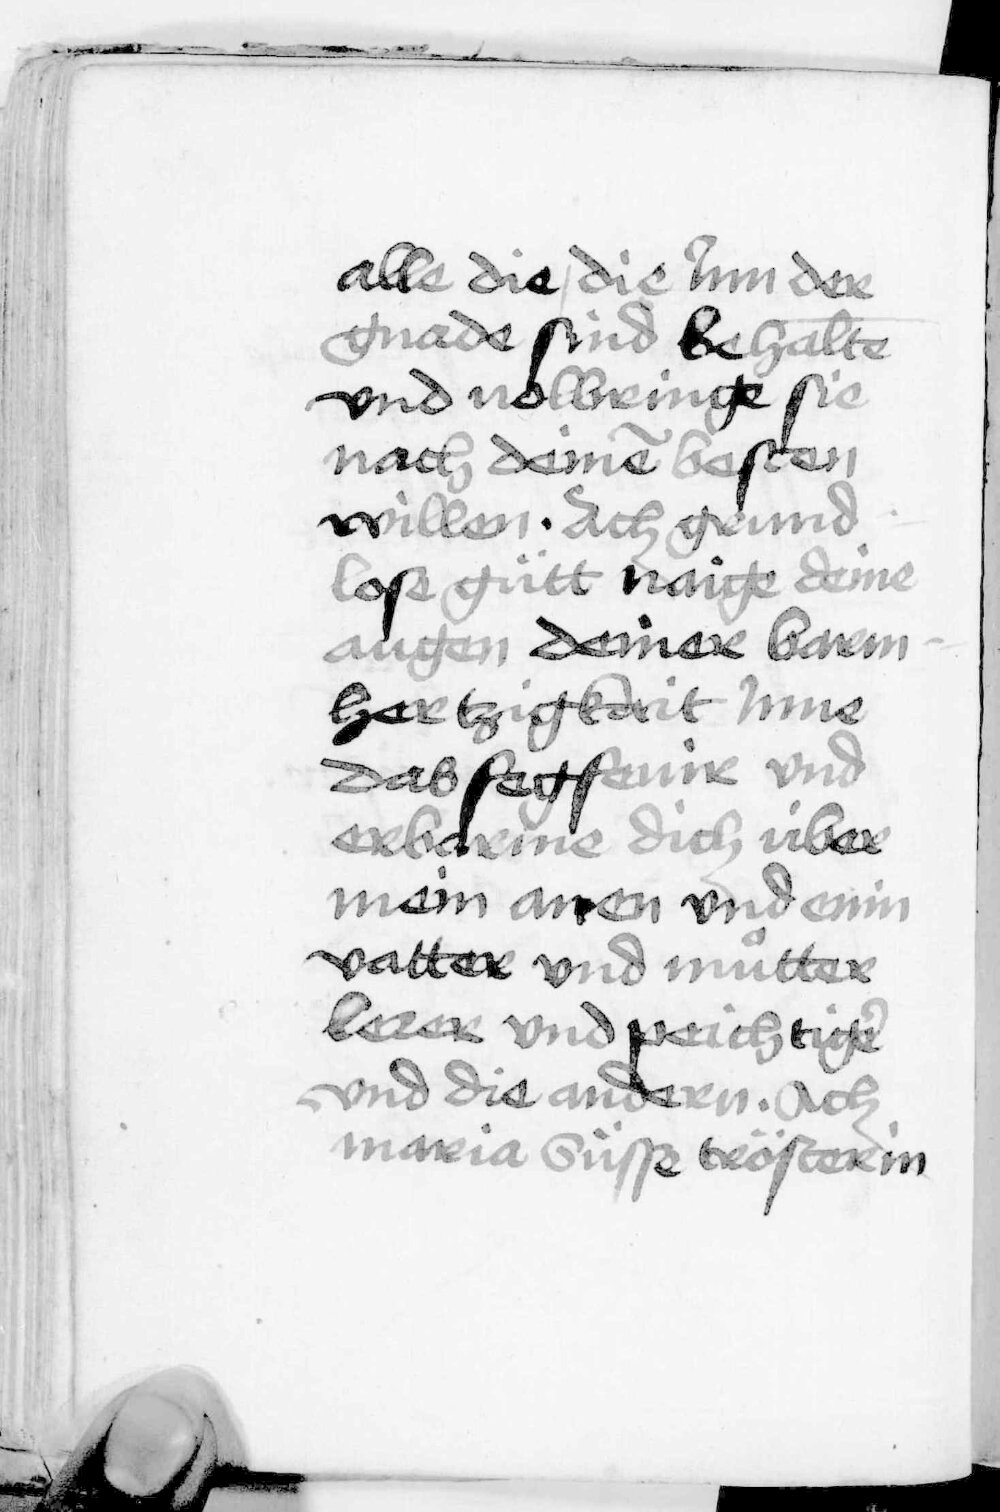 alle die die jnn der
gnade sind behalte
vnd volbringe sie
nach deinē besten
willen. Ach grund
lose gütt naige deine
augen deiner barm-
hertzigkait jnne
das fegfeuir vnd
erbarme dich über
mein anen vnd enin
vatter vnd můtter
lerer vnd peichtiger
vnd die andern. Ach
maria süsse trösterin